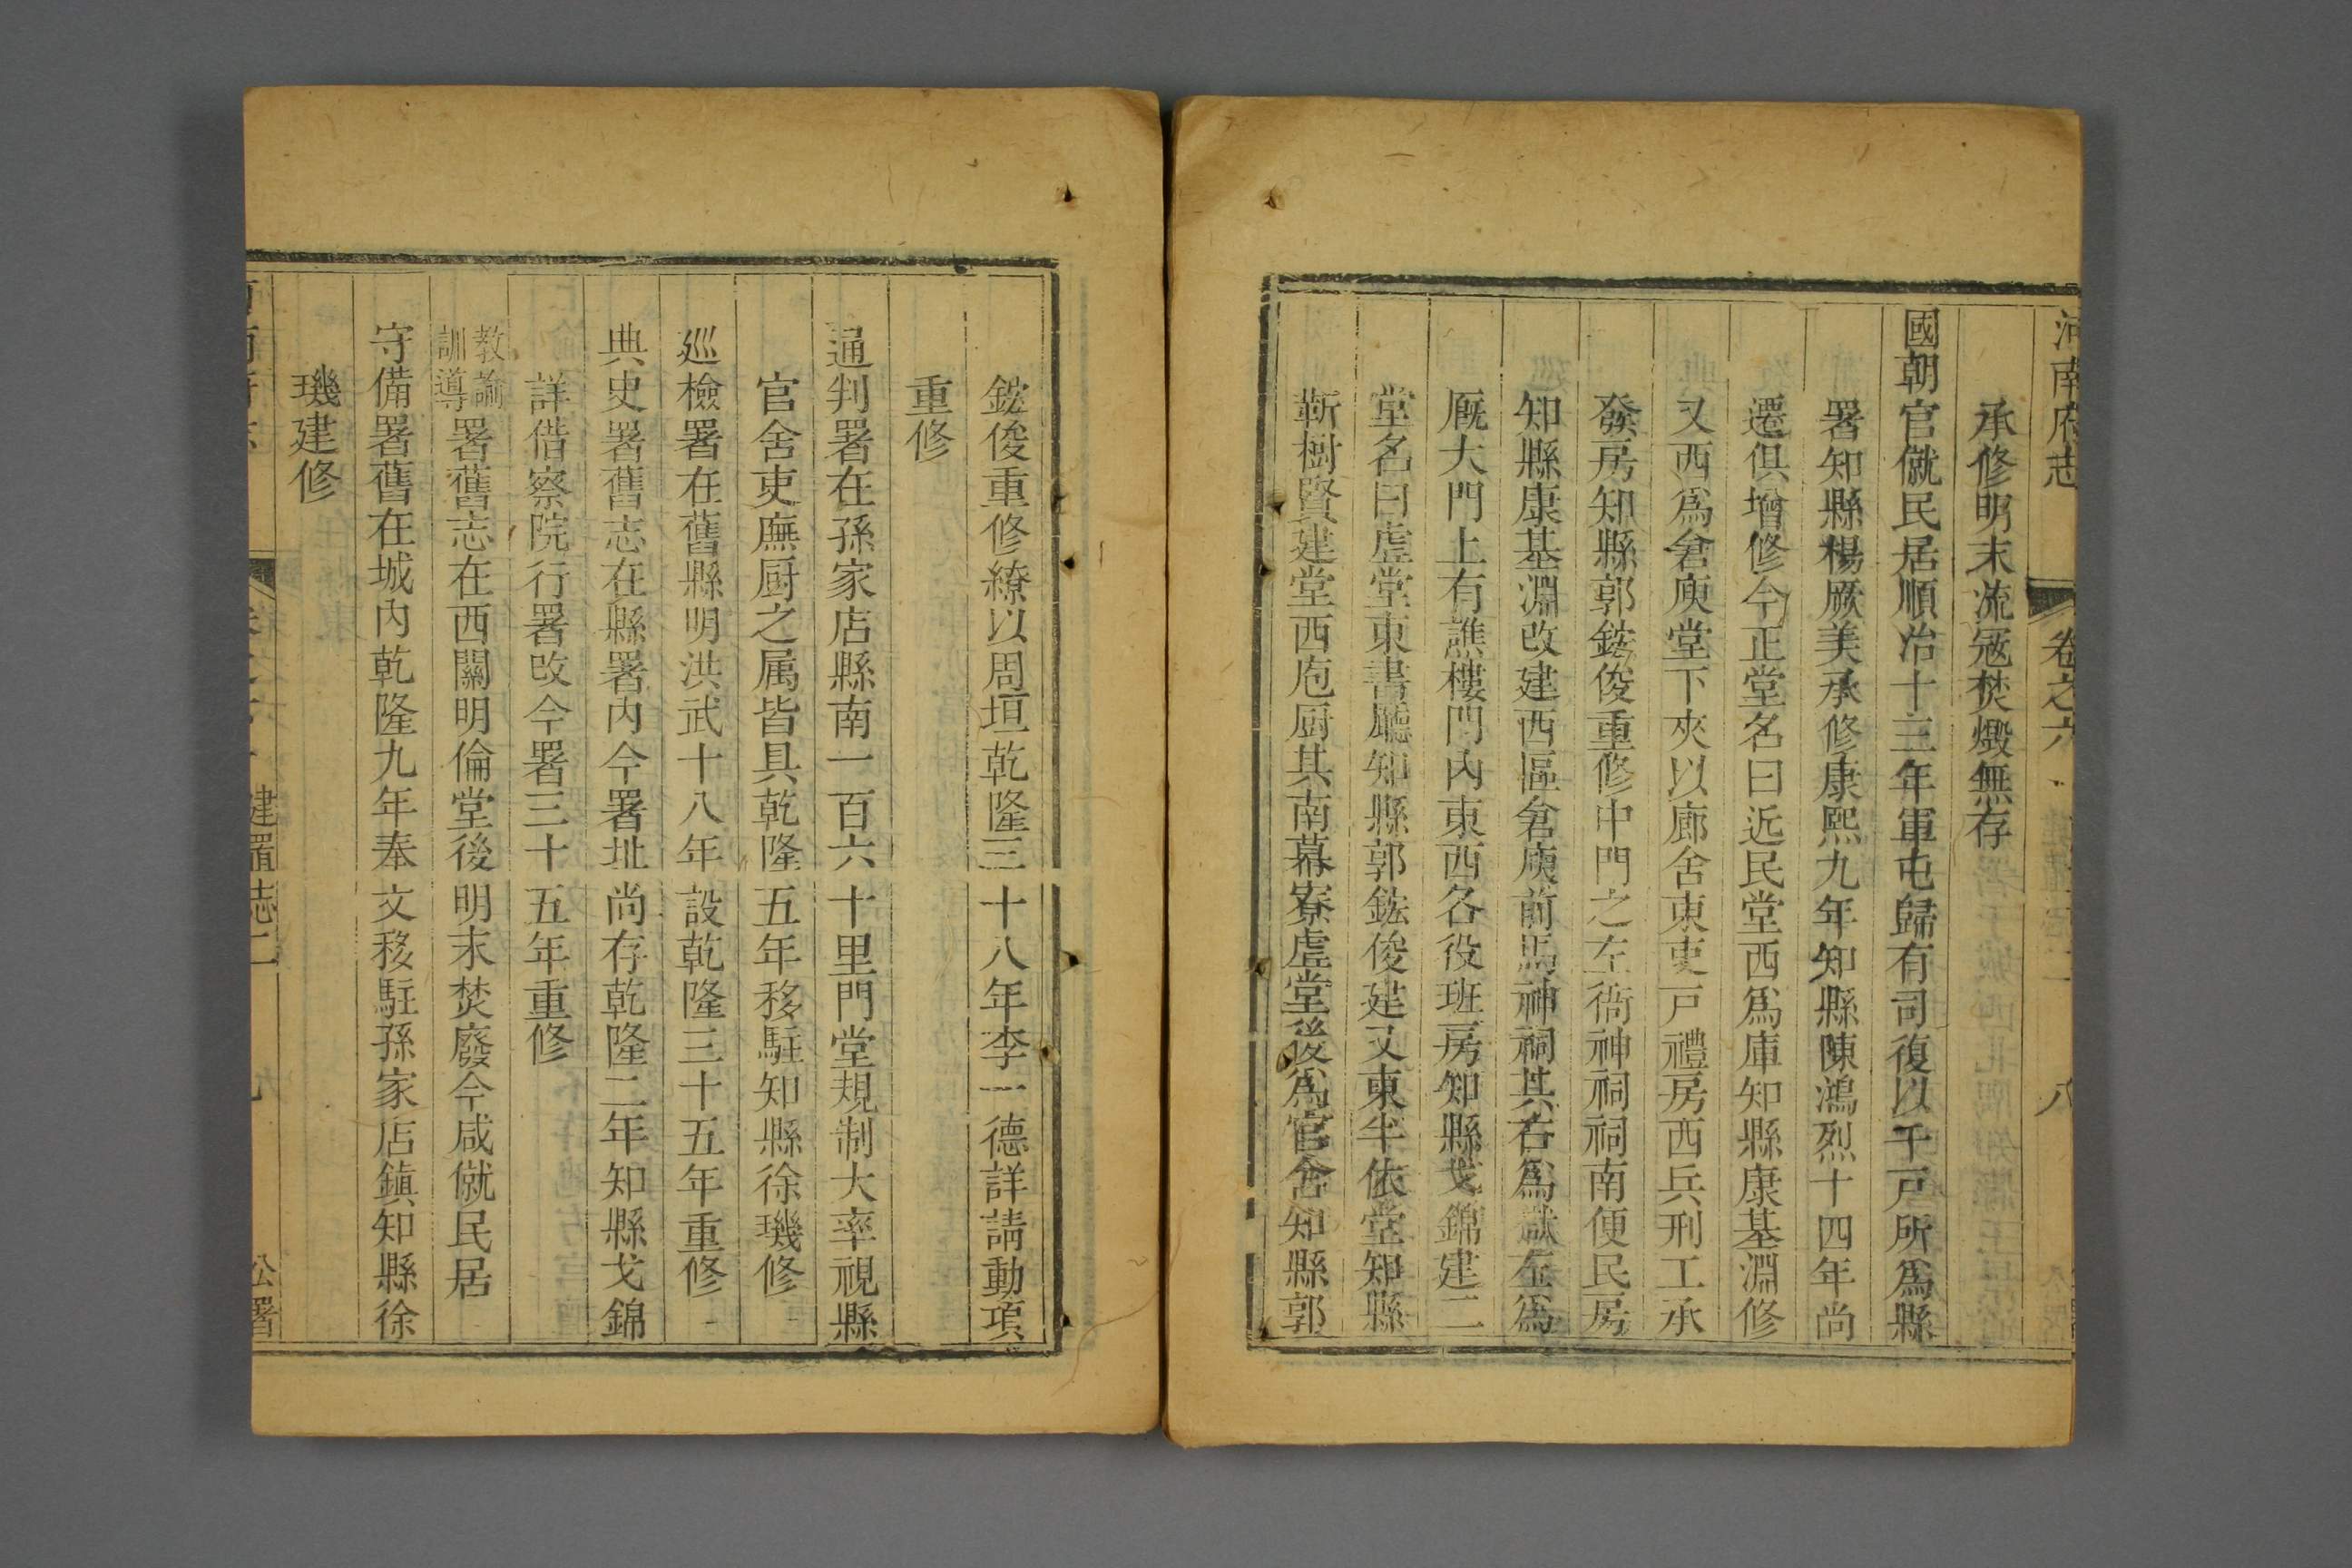 河南府志 卷之六 八
承修明末流寇焚燬無存
國朝官僦民居順治十三年軍屯歸有司復以千戸所爲縣
署知縣楊厥美承修康熙九年知縣陳鴻烈十四年尚
遷俱增修今正堂名曰近民堂西爲庫知縣康基淵修
又西爲倉庾堂下夾以廊舍東吏戸禮房西兵刑工承
發房知縣郭鋐俊重修中門之左衙神祠祠南便民房
知縣康基淵改建西區倉庾前馬神祠其右爲獄左爲
厩大門上有譙樓門內東西各役班房知縣戈錦建二
堂名曰虛堂東書廳知縣郭鋐俊建又東半依堂知縣
靳樹賢建堂西庖厨其南幕寮虛堂後爲官舍知縣郭
鋐俊重修繚以周垣乾隆三十八年李一德詳請動項
重修
通判署在孫家店縣南一百六十里門堂規制大率視縣
官舍吏廡厨之属皆具乾隆五年移駐知縣徐璣修
廵檢署在舊縣明洪武十八年設乾隆三十五年重修
典史署舊志在縣署內今署址尚存乾隆二年知縣戈錦
詳借察院行署改今署三十五年重修
教諭訓導署舊志在西關明倫堂後明末焚廢今咸僦民居
守備署舊在城內乾隆九年奉文移駐孫家店鎮知縣徐
璣建修
建置志二 九 公署